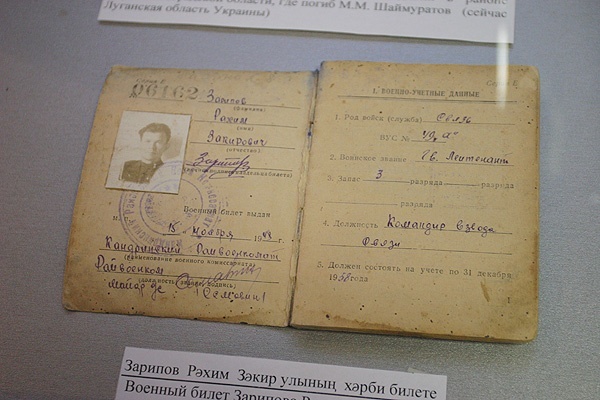 районе
области, где погиб М.М. Шаймуратов (сейчас
Луганская область Украины)
Серия Е
06162
Зарипов
(фамилия)
Рахим
(имя)
Закирович
(отчество)
Военный билет выдан
15 ноября 19 г.
Кандринский Райвоенкомат
(наименование военного комиссариата)
Райвоенком
майор
Серия Е
I. ВОЕННО-УЧЕТНЫЕ ДАННЫЕ
1. Род войск (служба) Связь
ВУС №
2. Воинское звание Гв. Лейтенант
3. Запас 3 разряда разряда
разряда
4. Должность Командир взвода
Связи
5. Должен состоять на учете по 31 декабря
19 года
1
Зарипов Рәхим Зәкир улының хәрби билеты
Военный билет Зарипова